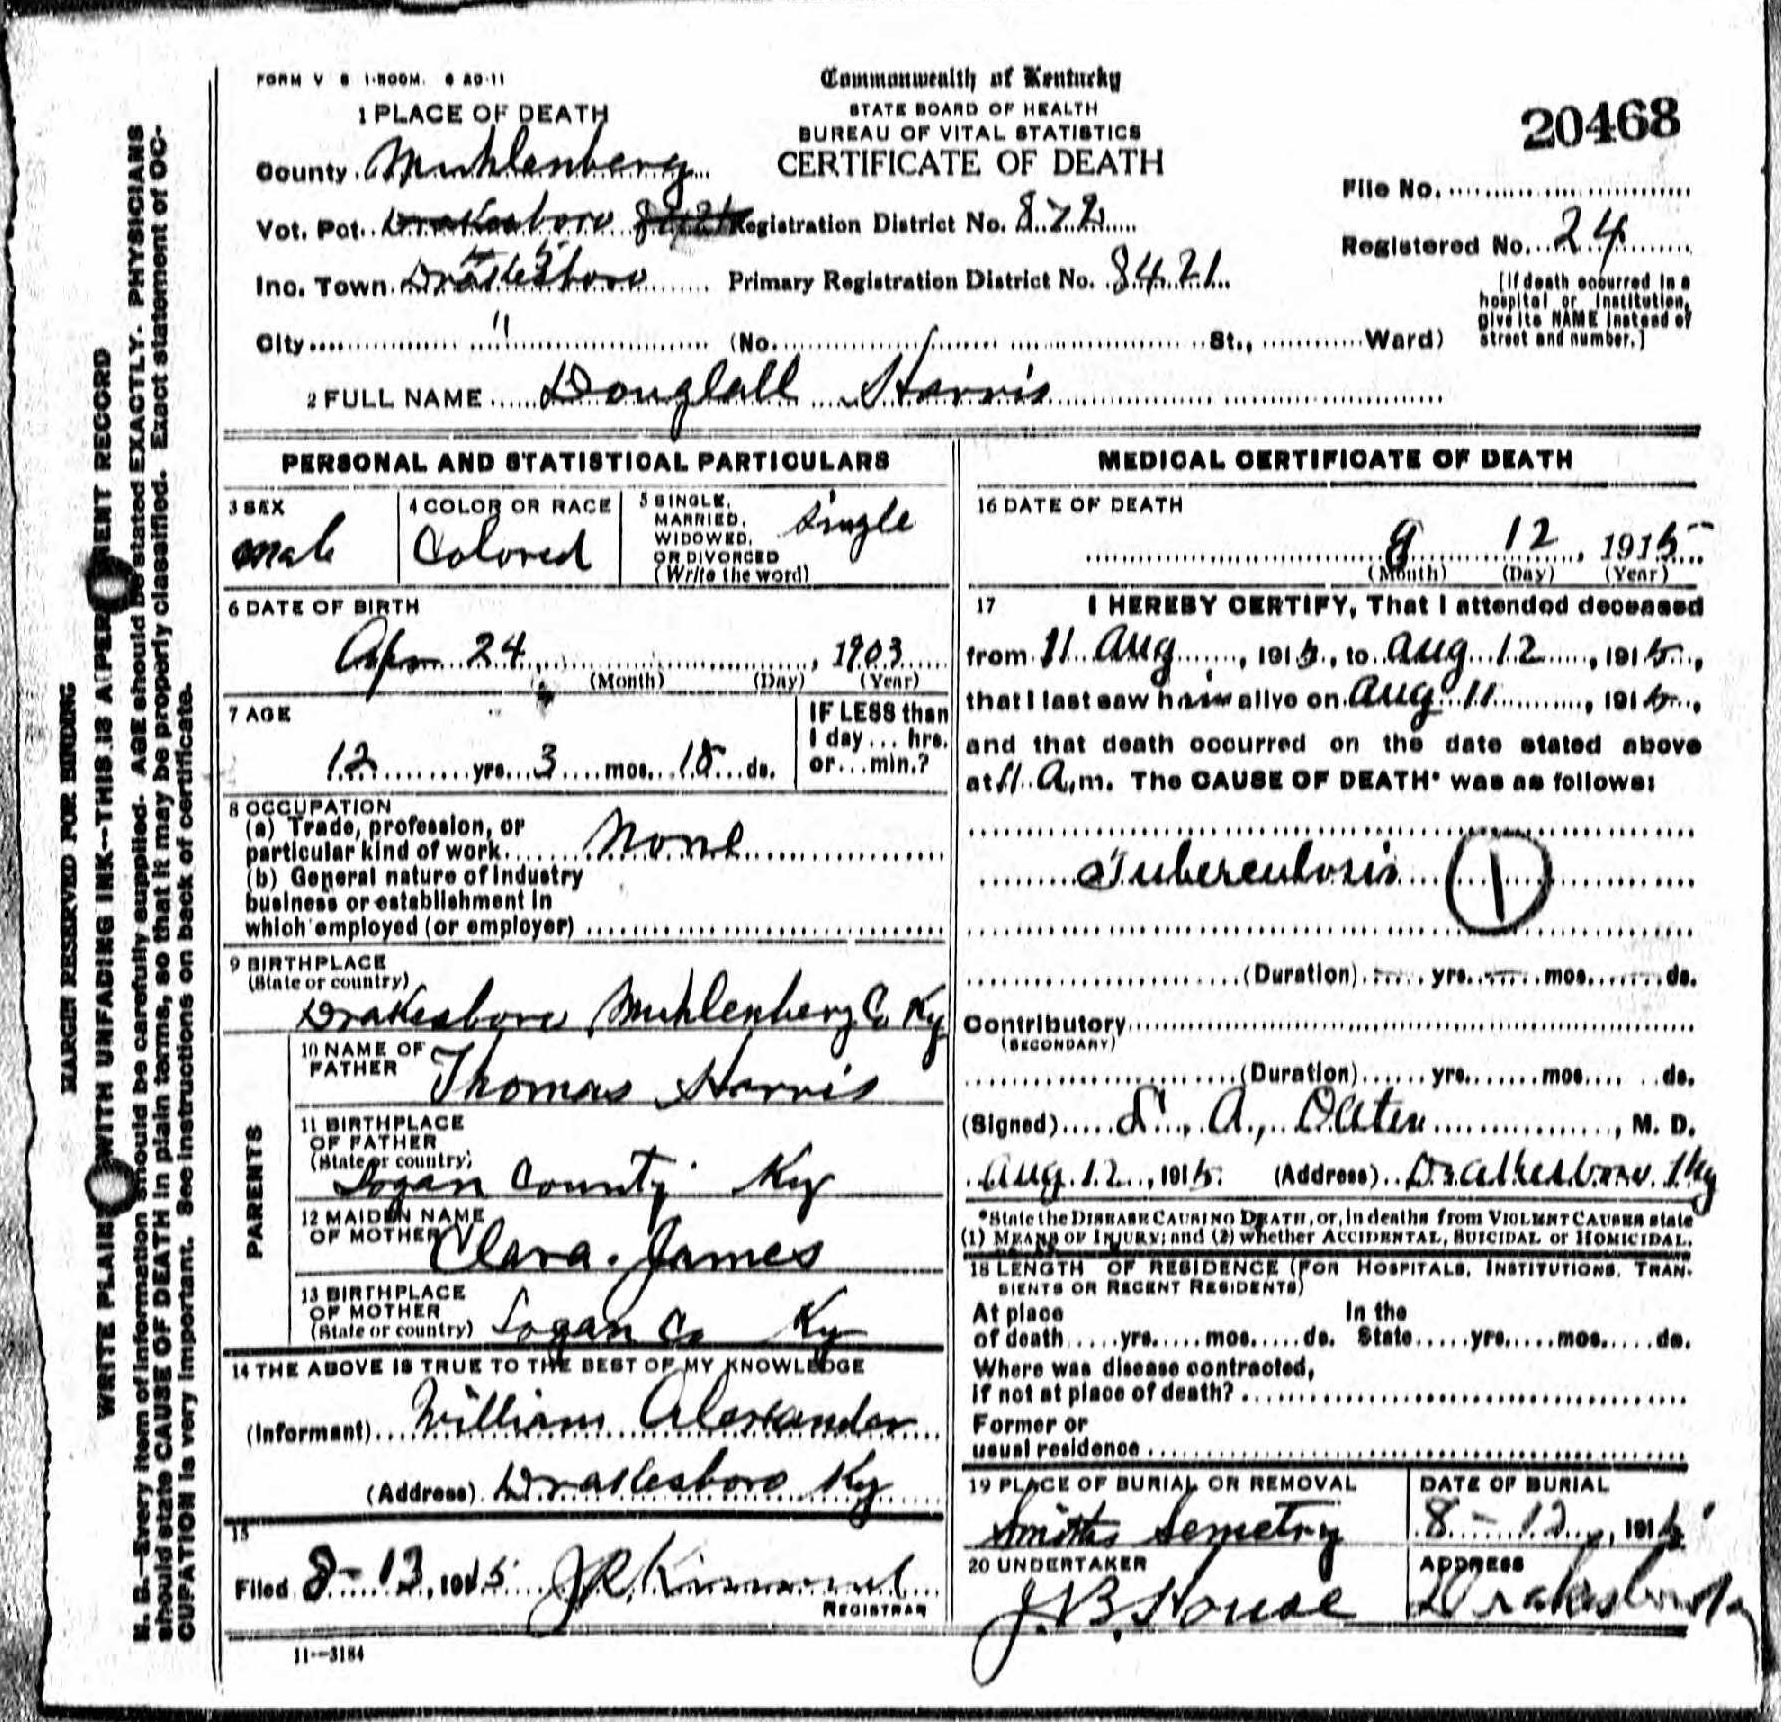 FORM V S 1-500M. 6 AD-11
Commonwealth of Kentucky
STATE BOARD OF HEALTH
BUREAU OF VITAL STATISTICS
CERTIFICATE OF DEATH
20468
1 PLACE OF DEATH
County Muhlenberg
Vot. Pct. Drakesboro Registration District No. 872
Inc. Town Drakesboro Primary Registration District No. 8421
City " (No. St., Ward)
File No.
Registered No. 24
[If death occurred in a
hospital or institution,
give its NAME instead of
street and number.]
2 FULL NAME Douglall Harris
PERSONAL AND STATISTICAL PARTICULARS
3 SEX
male
4 COLOR OR RACE
Colored
5 SINGLE,
MARRIED,
WIDOWED,
OR DIVORCED
(Write the word)
single
6 DATE OF BIRTH
Apr 24, 1903
(Month) (Day) (Year)
7 AGE
12 yrs. 3 mos. 18 ds.
IF LESS than
1 day ... hrs.
or ... min.?
8 OCCUPATION
(a) Trade, profession, or
particular kind of work. None
(b) General nature of industry
business or establishment in
which employed (or employer)
9 BIRTHPLACE
(State or country)
Drakesboro Muhlenberg Co Ky
PARENTS
10 NAME OF
FATHER
Thomas Harris
11 BIRTHPLACE
OF FATHER
(State or country)
Logan County Ky
12 MAIDEN NAME
OF MOTHER
Clara James
13 BIRTHPLACE
OF MOTHER
(State or country) Logan Co Ky
14 THE ABOVE IS TRUE TO THE BEST OF MY KNOWLEDGE
(Informant) William Alexander
(Address) Drakesboro Ky
15
Filed 8-13, 1915
REGISTRAR
11--3184
MEDICAL CERTIFICATE OF DEATH
16 DATE OF DEATH
12, 1915
(Month) (Day) (Year)
17 I HEREBY CERTIFY, That I attended deceased
from 11 Aug, 1915, to Aug 12, 1915,
that I last saw him alive on Aug 11, 1915,
and that death occurred on the date stated above
at 11 A.m. The CAUSE OF DEATH* was as follows:
Tuberculosis 1
(Duration) yrs. mos. ds.
Contributory
(SECONDARY)
(Duration) yrs. mos. ds.
(Signed) A. M. D.
Aug. 12, 1915 (Address) Drakesboro Ky
*State the DISEASE CAUSING DEATH, or, in deaths from VIOLENT CAUSES state
(1) MEANS OF INJURY; and (2) whether ACCIDENTAL, SUICIDAL or HOMICIDAL.
18 LENGTH OF RESIDENCE (FOR HOSPITALS, INSTITUTIONS, TRAN-
SIENTS OR RECENT RESIDENTS)
At place In the
of death yrs. mos. ds. State yrs. mos. ds.
Where was disease contracted,
if not at place of death?
Former or
usual residence
19 PLACE OF BURIAL OR REMOVAL
Smiths Semetry
DATE OF BURIAL
8-12, 1915
20 UNDERTAKER
J. B. House
ADDRESS
Drakesboro
MARGIN RESERVED FOR BINDING
WRITE PLAINLY WITH UNFADING INK--THIS IS A PERMANENT RECORD
N. B.--Every item of information should be carefully supplied. AGE should be stated EXACTLY. PHYSICIANS
should state CAUSE OF DEATH in plain terms, so that it may be properly classified. Exact statement of OC-
CUPATION is very important. See instructions on back of certificate.